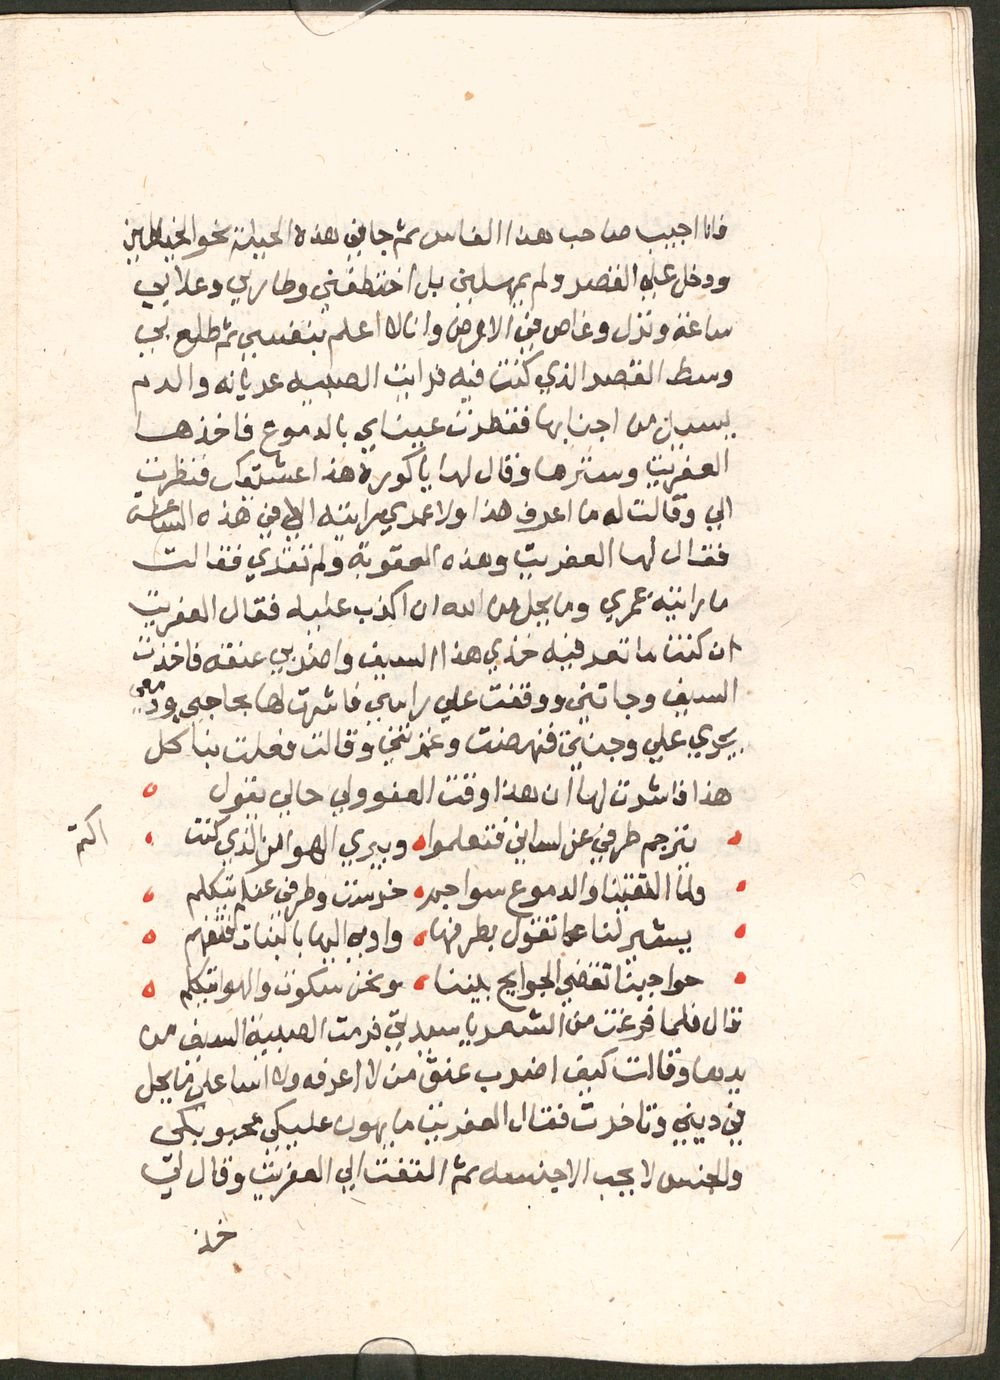 فانا اجيب صاحب هذا الفاس ثم جا في هذه الحيلة نحو الخياطين
ودخل علي القصر ولم يمهلني بل اختطفني وطار بي وعلا بي
ساعة ونزل وغاص في الارض وانا لا اعلم بنفسي ثم طلع بي
وسط القصر الذي كنت فيه فرايت الصبيه عريانه والدم
يسيل من اجنابها فقطرت عيناي بالدموع فاخذها
العفريت وسترها وقال لها يا كورة هذا عشيقك فنظرت
الي وقالت له ما اعرف هذا ولا عمري رايته الا في هذه الساعة
فقال لها العفريت وهذه العقوبة ولم تقري فقالت
ما رايته عمري وما يحل من الله ان اكذب عليه فقال العفريت
ان كنت ما تعرفيه خذي هذا السيف واضربي عنقه فاخذت
السيف وجاتني ووقفت علي راسي فاشرت لها بحاجبي ودمعي
يجري علي وجناتي فنهضت وغمزتني وقالت فعلت بنا كل
هذا فاشرت لها ان هذا وقت العفو ولي حالي يقول
يترجم طرفي عن لساني فتعلموا ويبري الهوا من الذي كنت
اكتم
ولما التقينا والدموع سواجم خرست وطرفي عنكم يتكلم
يشير لنا عما تقول بطرفها واومي اليها بالبنات فتفهم
حواجبنا تقضي الحوايج بيننا ونحن سكوت والهوا يتكلم
قال فلما فرغت من الشعر يا سيدتي فرمت الصبية السيف من
يدها وقالت كيف اضرب عنق من لا اعرفه ولا اسا علي ما يحل
في ديني وتاخرت فقال العفريت ما يهون عليكي محبوبكي
والجنس لا يحب الا جنسه ثم التفت الي العفريت وقال لي
خذ